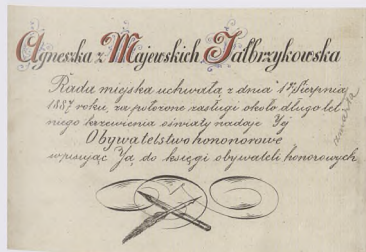 Agneszka z Majewskich Jałbrzykowska
Rada miejska uchwałą z dnia 17 Sierpnia
1887 roku, za położone zasługi około długolet
niego krzewienia oświaty nadaje Jej
Obywatelstwo hononorowe
wpisując Ją do księgi obywateli honorowych
zmarła